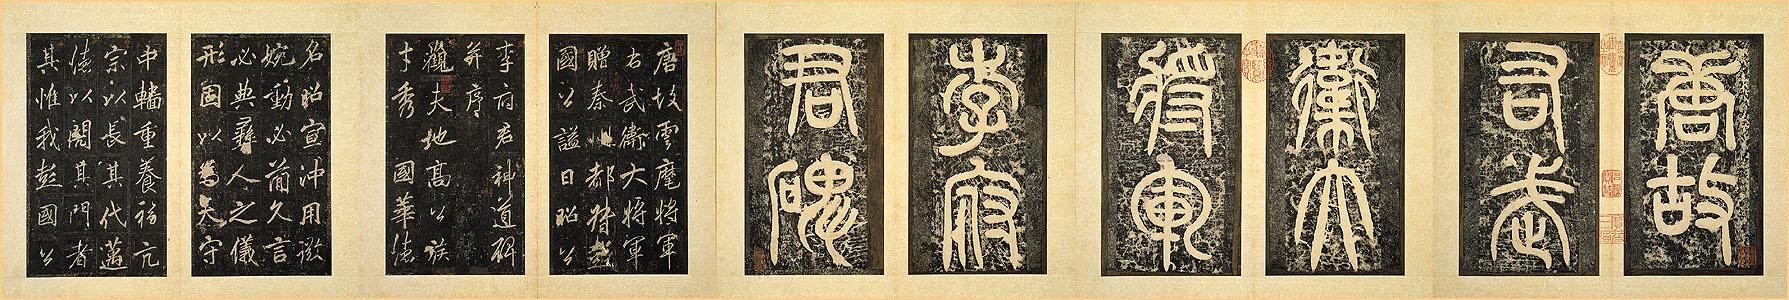 唐故
右武
衛大
將軍
李府
君碑
唐故雲麾將軍
右武衛大將軍
贈秦州都督彭
國公謚曰昭公
李府君神道碑
并序
觀夫地高公族
才秀國華德
名昭宣沖用微
婉動必簡久言
必典彝人之儀
形國以為天守
中轓重養福亢
宗以長其代邁
德以閥其門者
其惟我彭國公